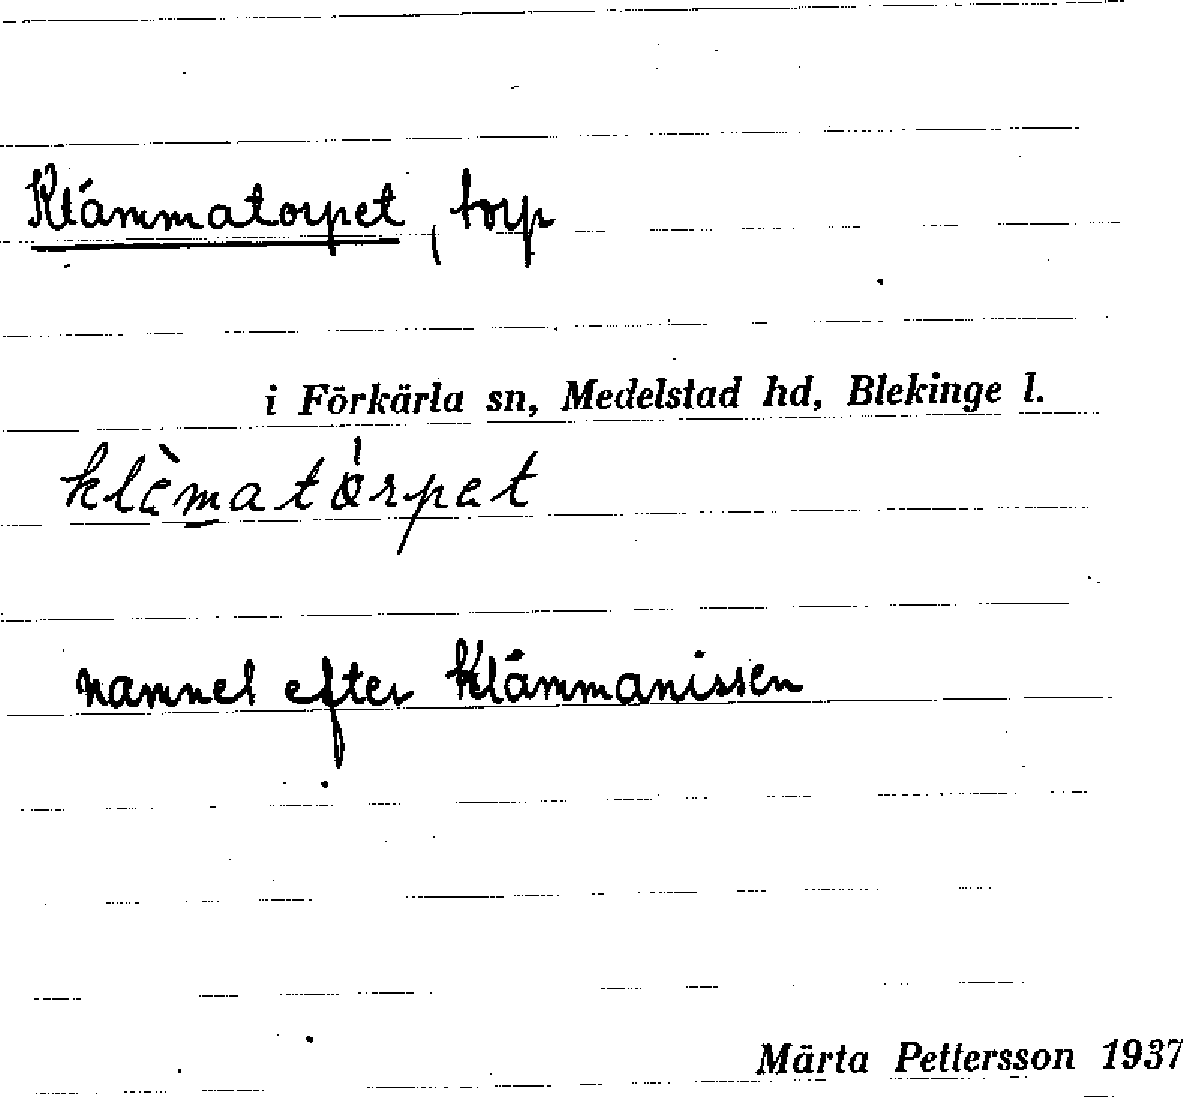 Klämmatorpet, torp
i Förkärla sn, Medelstad hd, Blekinge l.
klèmatórpet
namnet efter Klämmanissen
Märta Pettersson 1937